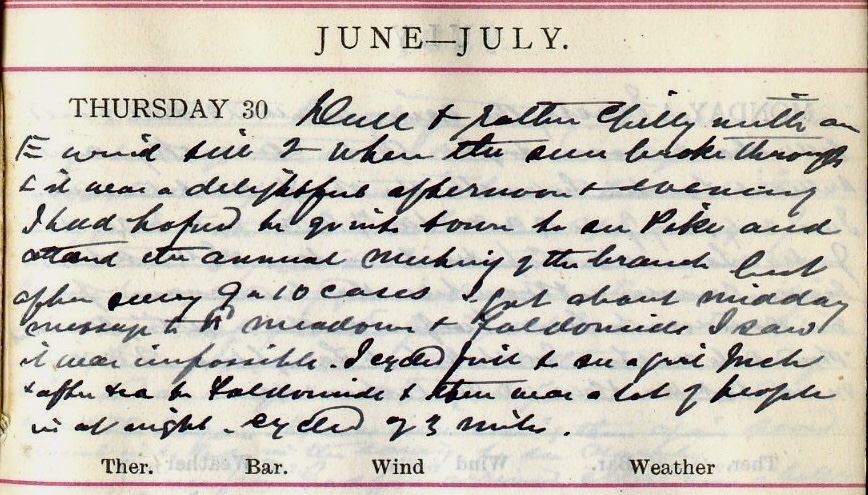 JUNE—JULY.
THURSDAY 30 Dull & rather chilly with an
E wind till 2 when the sun broke through
& it was a delightful afternoon & evening
I had hoped to go into town to see Pike and
attend the annual meeting of the branch but
after seeing 9 or 10 cases & got about midday
message to meadow & I saw
it was impossible. I cycled first to see a girl
& after tea to & there was a lot of people
in at night. cycled 23 miles.
Ther. Bar. Wind Weather